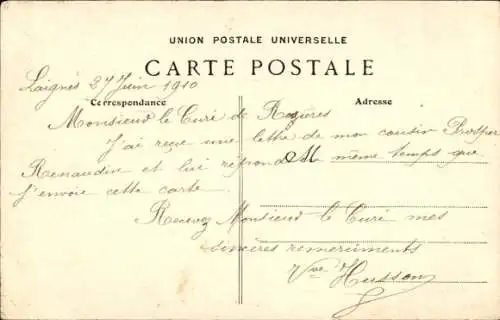 UNION POSTALE UNIVERSELLE
CARTE POSTALE
Laignes 27 Juin 1910
Correspondance
Adresse
Monsieur le Curé de Rozières
J'ai reçue une lettre de mon cousin Prosper
Renaudin et lui répond en même temps que
j'envoie cette carte.
Recevez Monsieur le Curé mes
sincères remerciments
Vve Husson